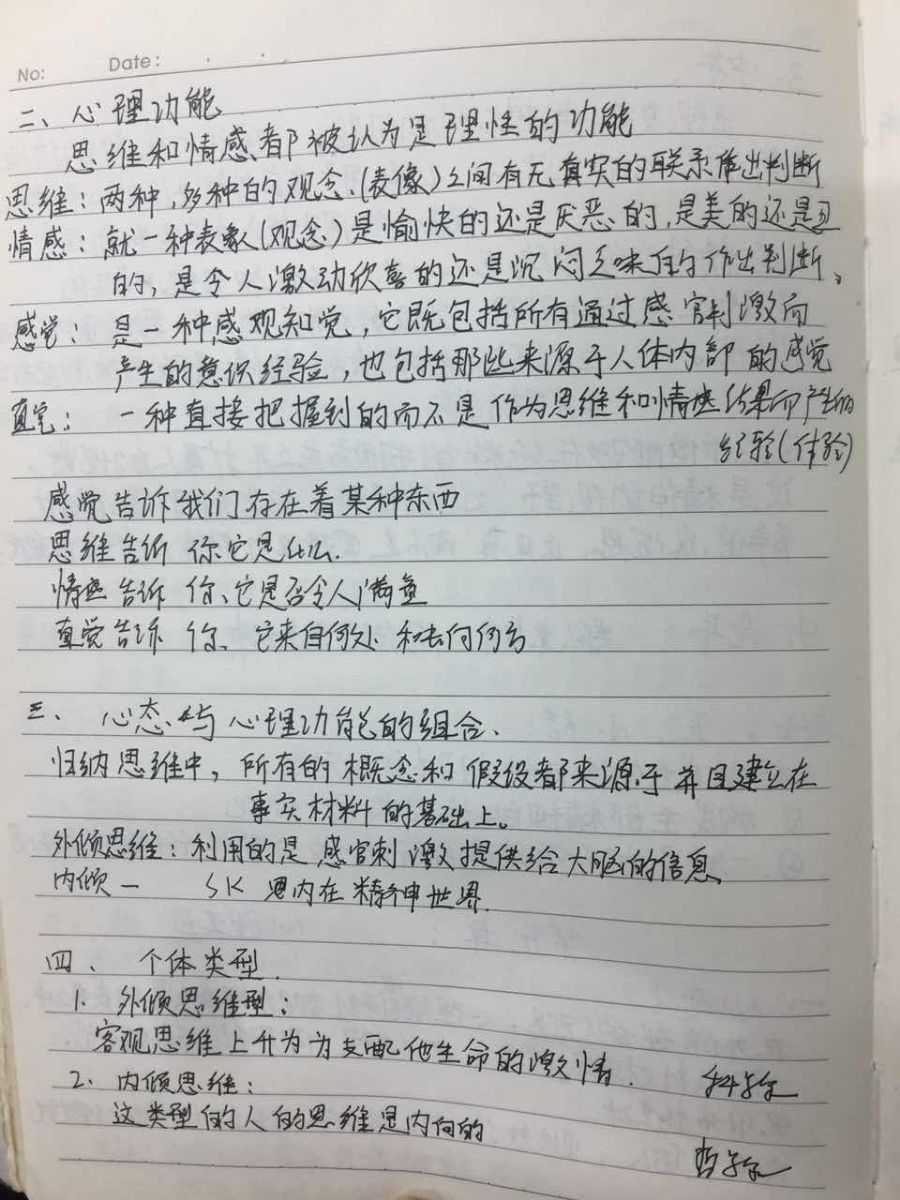 No: Date: . .
二、心理功能
思维和情感都被认为是理性的功能
思维：两种，多种的观念（表像）之间有无真实的联系作出判断
情感：就一种表象（观念）是愉快的还是厌恶的，是美的还是丑
的，是令人激动欣喜的还是沉闷乏味的作出判断、
感觉：是一种感观知觉，它既包括所有通过感官刺激而
产生的意识经验，也包括那些来源于人体内部的感觉
直觉：一种直接把握到的而不是作为思维和情感结果而产生的
经验（体验）
感觉告诉我们存在着某种东西
思维告诉你它是什么.
情感告诉你、它是否令人满意
直觉告诉你、它来自何处和去向何方
三、心态与心理功能的组合、
归纳思维中，所有的概念和假设都来源于并且建立在
事实材料的基础上。
外倾思维：利用的是感官刺激提供给大脑的信息、
内倾一 思内在精神世界.
四、个体类型.
1. 外倾思维型：
客观思维上升为为支配他生命的激情. 科学家
2. 内倾思维：
这类型的人的思维是内向的
哲学家